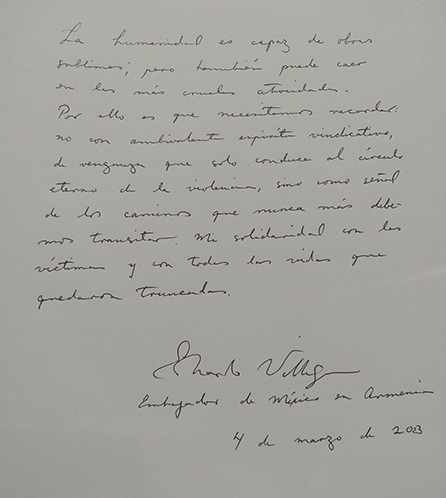 La humanidad es capaz de obras
sublimes; pero también puede caer
en las más crueles atrocidades.
Por ello es que necesitamos recordar:
no con ambivalente espíritu vindicativo,
de venganza que solo conduce al círculo
eterno de la violencia, sino como señal
de los caminos que nunca más debe-
mos transitar. Mi solidaridad con las
víctimas y con todas las vidas que
quedaron truncadas.
Embajador de México en Armenia
4 de marzo de 2023